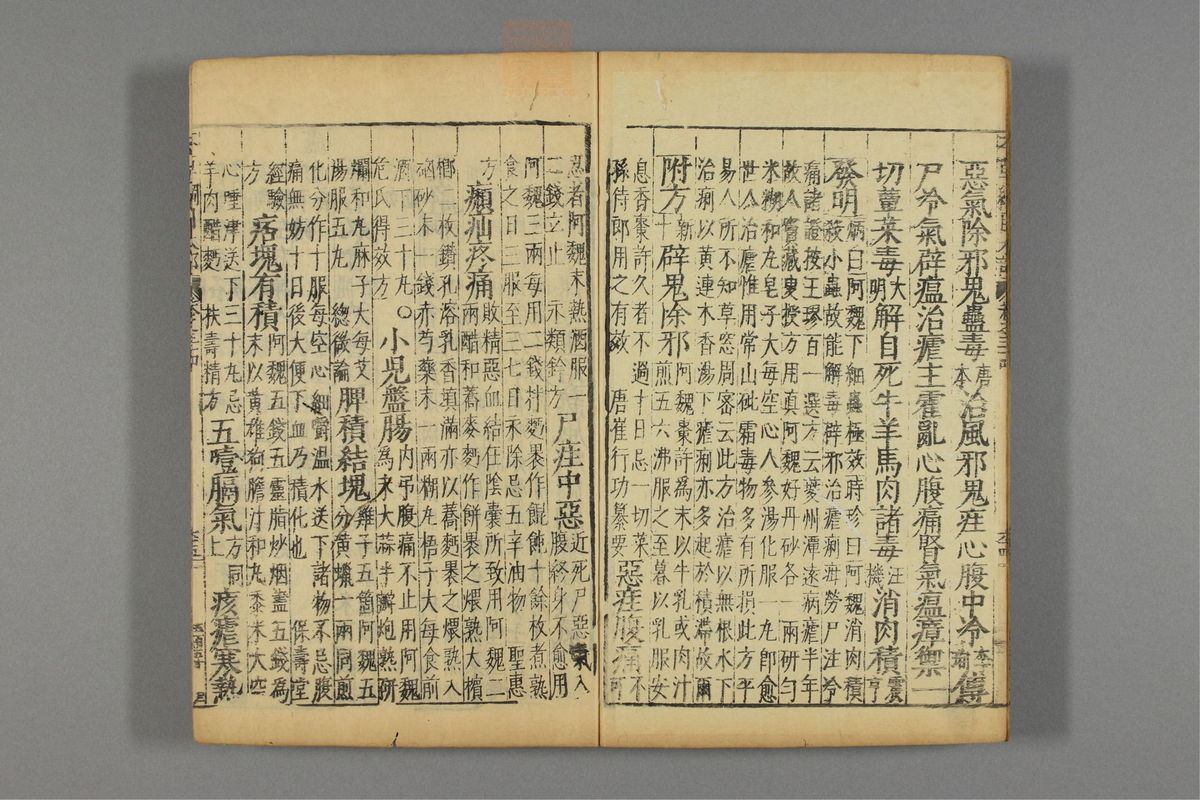 惡氣除邪鬼蠱毒唐本治風邪鬼疰心腹中冷李珣傳
尸冷氣辟瘟治瘧主霍亂心腹痛腎氣瘟瘴禦一
切蕈菜毒大明解自死牛羊馬肉諸毒汪機消肉積震亨
發明炳曰阿魏下細蟲極效時珍曰阿魏消肉積
殺小蟲故能解毒辟邪治瘧痢疳勞尸注冷
痛諸證按王璆百一選方云夔州潭逵病瘧半年
故人竇藏叟授方用真阿魏好丹砂各一兩研勻
米糊和丸皂子大每空心人參湯化服一丸卽愈
世人治瘧惟用常山砒霜毒物多有所損此方平
易人所不知草窓周密云此方治瘧以無根水下
治痢以黃連木香湯下瘧痢亦多起於積滯故爾
附方新十辟鬼除邪阿魏棗許爲末以牛乳或肉汁
煎五六沸服之至暮以乳服安
息香棗許久者不過十日忌一切菜
孫侍郎用之有效 唐崔行功纂要 惡疰腹痛不可
忍者阿魏末熱酒服一
二錢立止 永類鈐方 尸疰中惡近死尸惡氣入
腹終身不愈用
阿魏三兩每用二錢拌麪裹作餛飩十餘枚煮熟
食之日三服至三七日永除忌五辛油物 聖惠
方 㿗疝疼痛敗精惡血結在陰囊所致用阿魏二
兩醋和蕎麥麪作餅裹之煨熟大檳
榔二枚鑽孔溶乳香填滿亦以蕎麪裹之煨熟入
硇砂末一錢赤芍藥末一兩糊丸梧子大每食前
酒下三十丸
危氏得效方 ○小兒盤腸內弔腹痛不止用阿魏
爲末大蒜半瓣炮熟研
爛和丸麻子大每艾
湯服五丸 總微論 脾積結塊雞子五箇阿魏五
分黃蠟一兩同煎
化分作十服每空心細嚼溫水送下諸物不忌腹
痛無妨十日後大便下血乃積化也 保壽堂
經驗方 痞塊有積阿魏五錢五靈脂炒烟盡五錢爲
末以黃雄狗膽汁和丸黍米大空
心唾津送下三十丸忌
羊肉醋麪 扶壽精方 五噎膈氣方同上 痎瘧寒熱